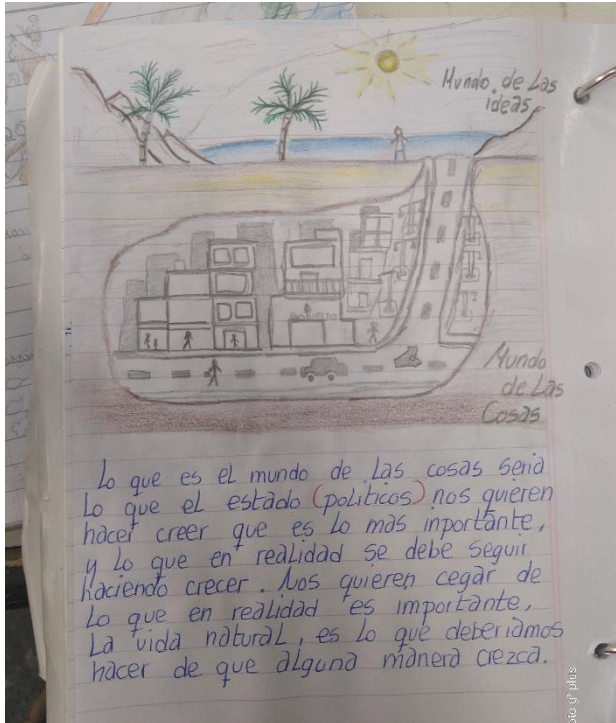 Mundo de Las
ideas
Mundo
de Las
Cosas
Lo que es el mundo de las cosas seria
Lo que el estado (politicos) nos quieren
hacer creer que es Lo mas inportante,
y Lo que en realidad se debe seguir
haciendo crecer. Nos quieren cegar de
Lo que en realidad es importante,
La vida natural, es lo que deberiamos
hacer de que alguna manera crezca.